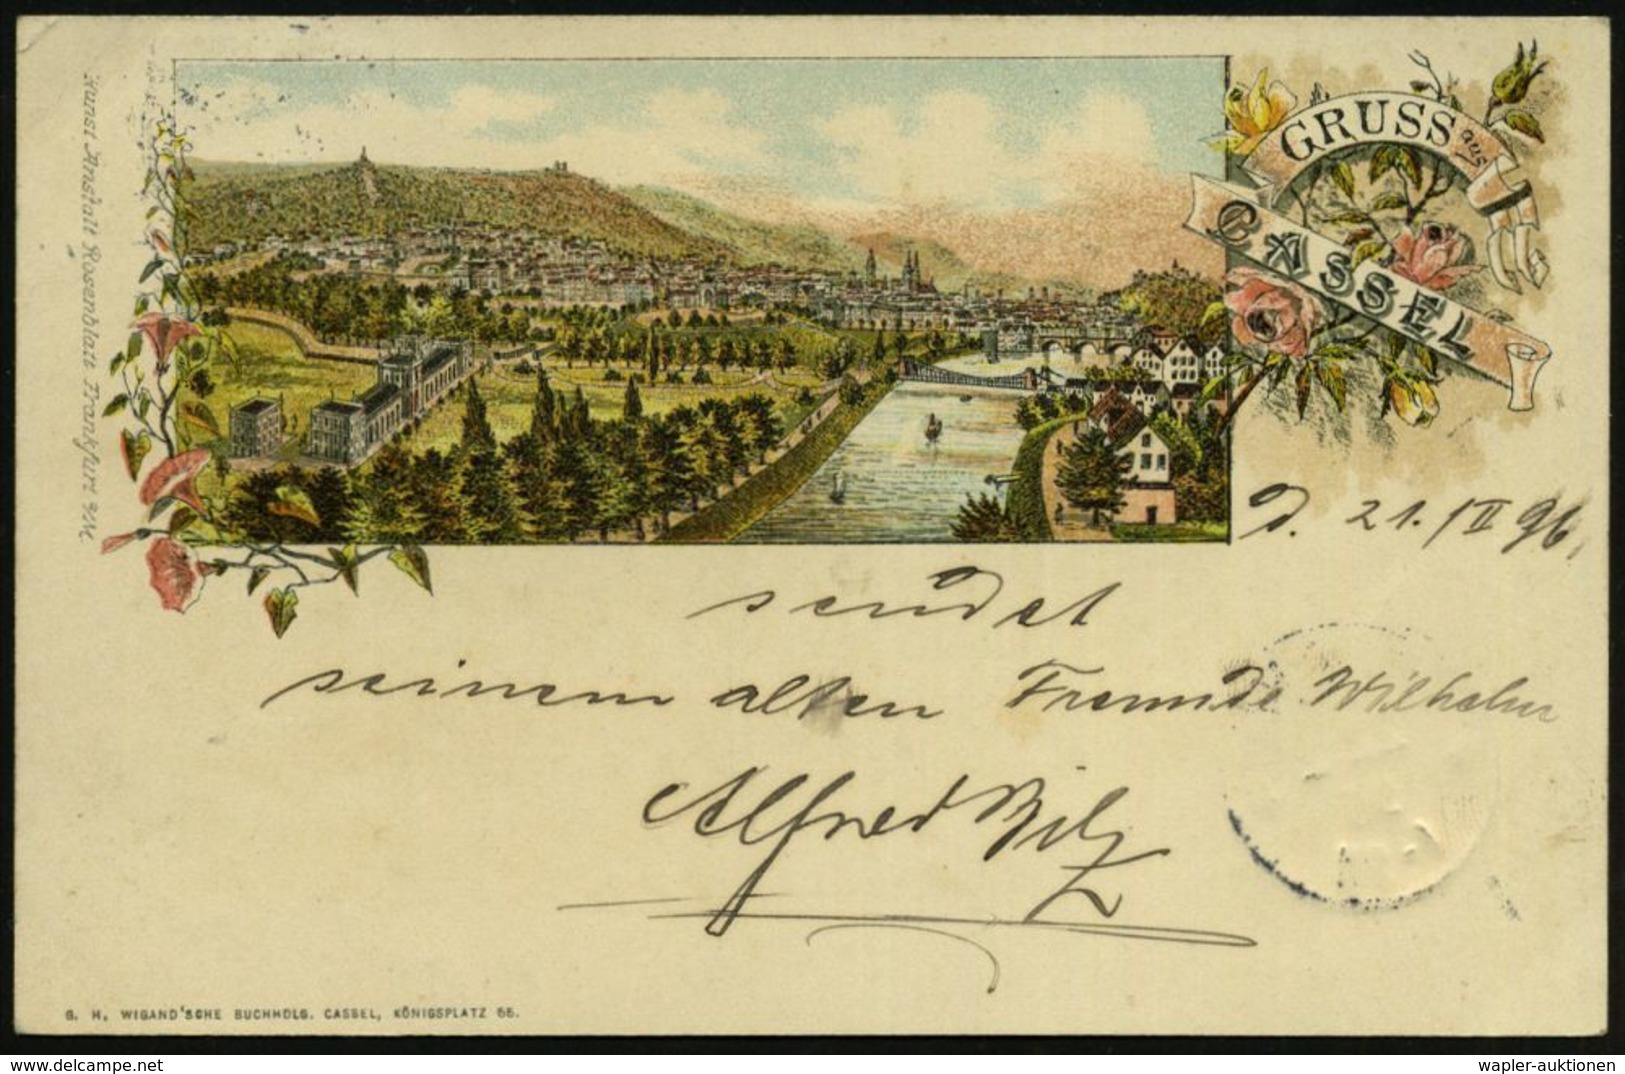 GRUSS aus
CASSEL
Kunst Anstalt Rosenblatt Frankfurt a/M.
d. 21./II 96.
sendet
seinem alten Freunde Wilhelm
Alfred Bilz
G. H. WIGAND'SCHE BUCHHDLG. CASSEL, KÖNIGSPLATZ 55.
wapler-auktionen